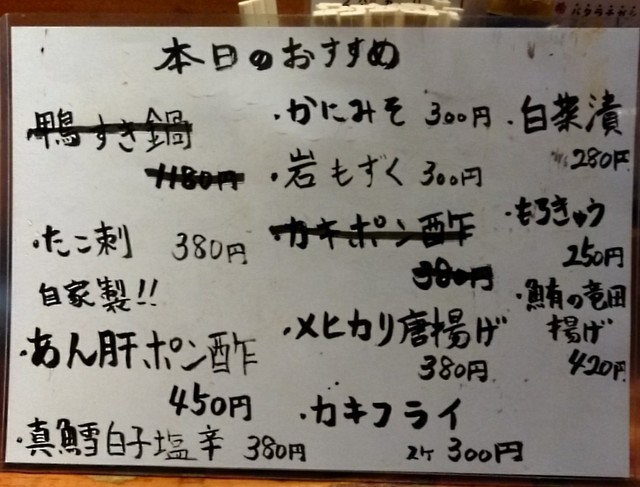 本日のおすすめ
鴨すき鍋
1180円
・たこ刺 380円
自家製!!
・あん肝ポン酢
450円
・真鱈白子塩辛 380円
・かにみそ 300円
・岩もずく 300円
・カキポン酢
380円
・メヒカリ唐揚げ
380円
・カキフライ
2ケ 300円
・白菜漬
280円
・もろきゅう
250円
・鮪の竜田
揚げ
420円